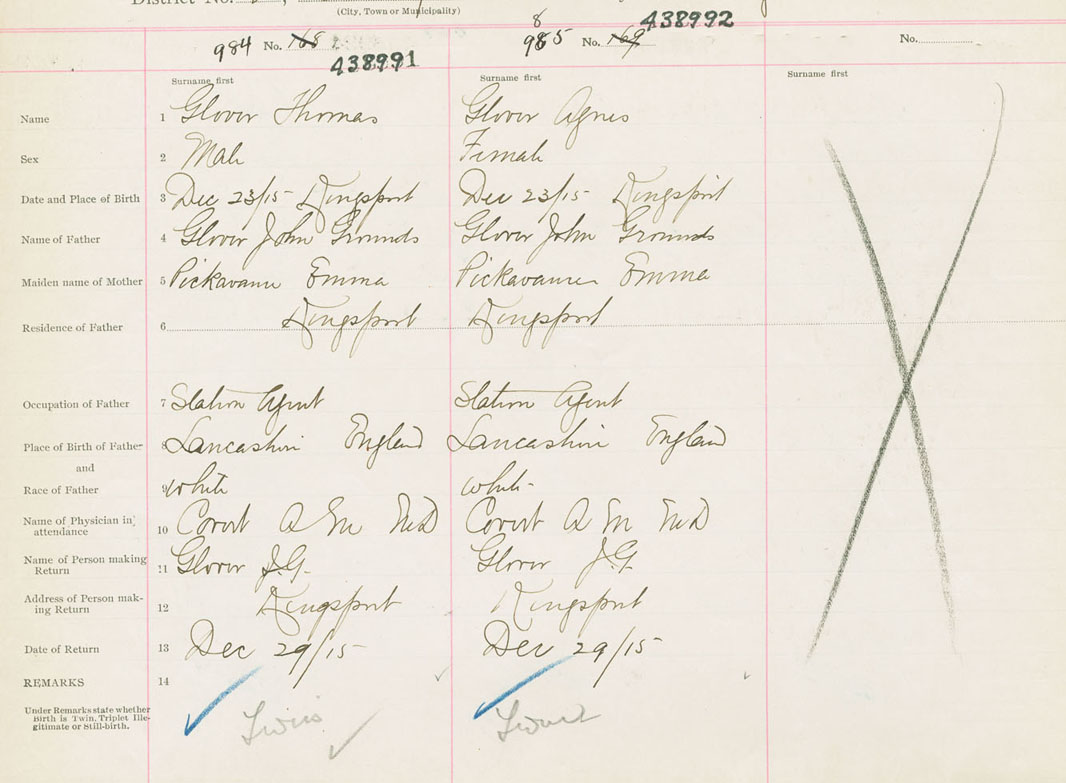 District No.
(City, Town or Municipality)
984 No. 168
438991
8
985 No. 169
438992
No.
Surname first
Surname first
Surname first
Name 1 Glover Thomas Glover Agnes
Sex 2 Male Female
Date and Place of Birth 3 Dec 23/15 Kingsport Dec 23/15 Kingsport
Name of Father 4 Glover John Grounds Glover John Grounds
Maiden name of Mother 5 Pickavance Emma Pickavance Emma
Residence of Father 6 Kingsport Kingsport
Occupation of Father 7 Station Agent Station Agent
Place of Birth of Father 8 Lancashire England Lancashire England
and
Race of Father 9 White White
Name of Physician in attendance 10 Covert A M M.D Covert A M M.D
Name of Person making Return 11 Glover J.G. Glover J.G.
Address of Person making Return 12 Kingsport Kingsport
Date of Return 13 Dec 29/15 Dec 29/15
REMARKS 14
Under Remarks state whether
Birth is Twin, Triplet Ille-
gitimate or Still-birth.
Twins